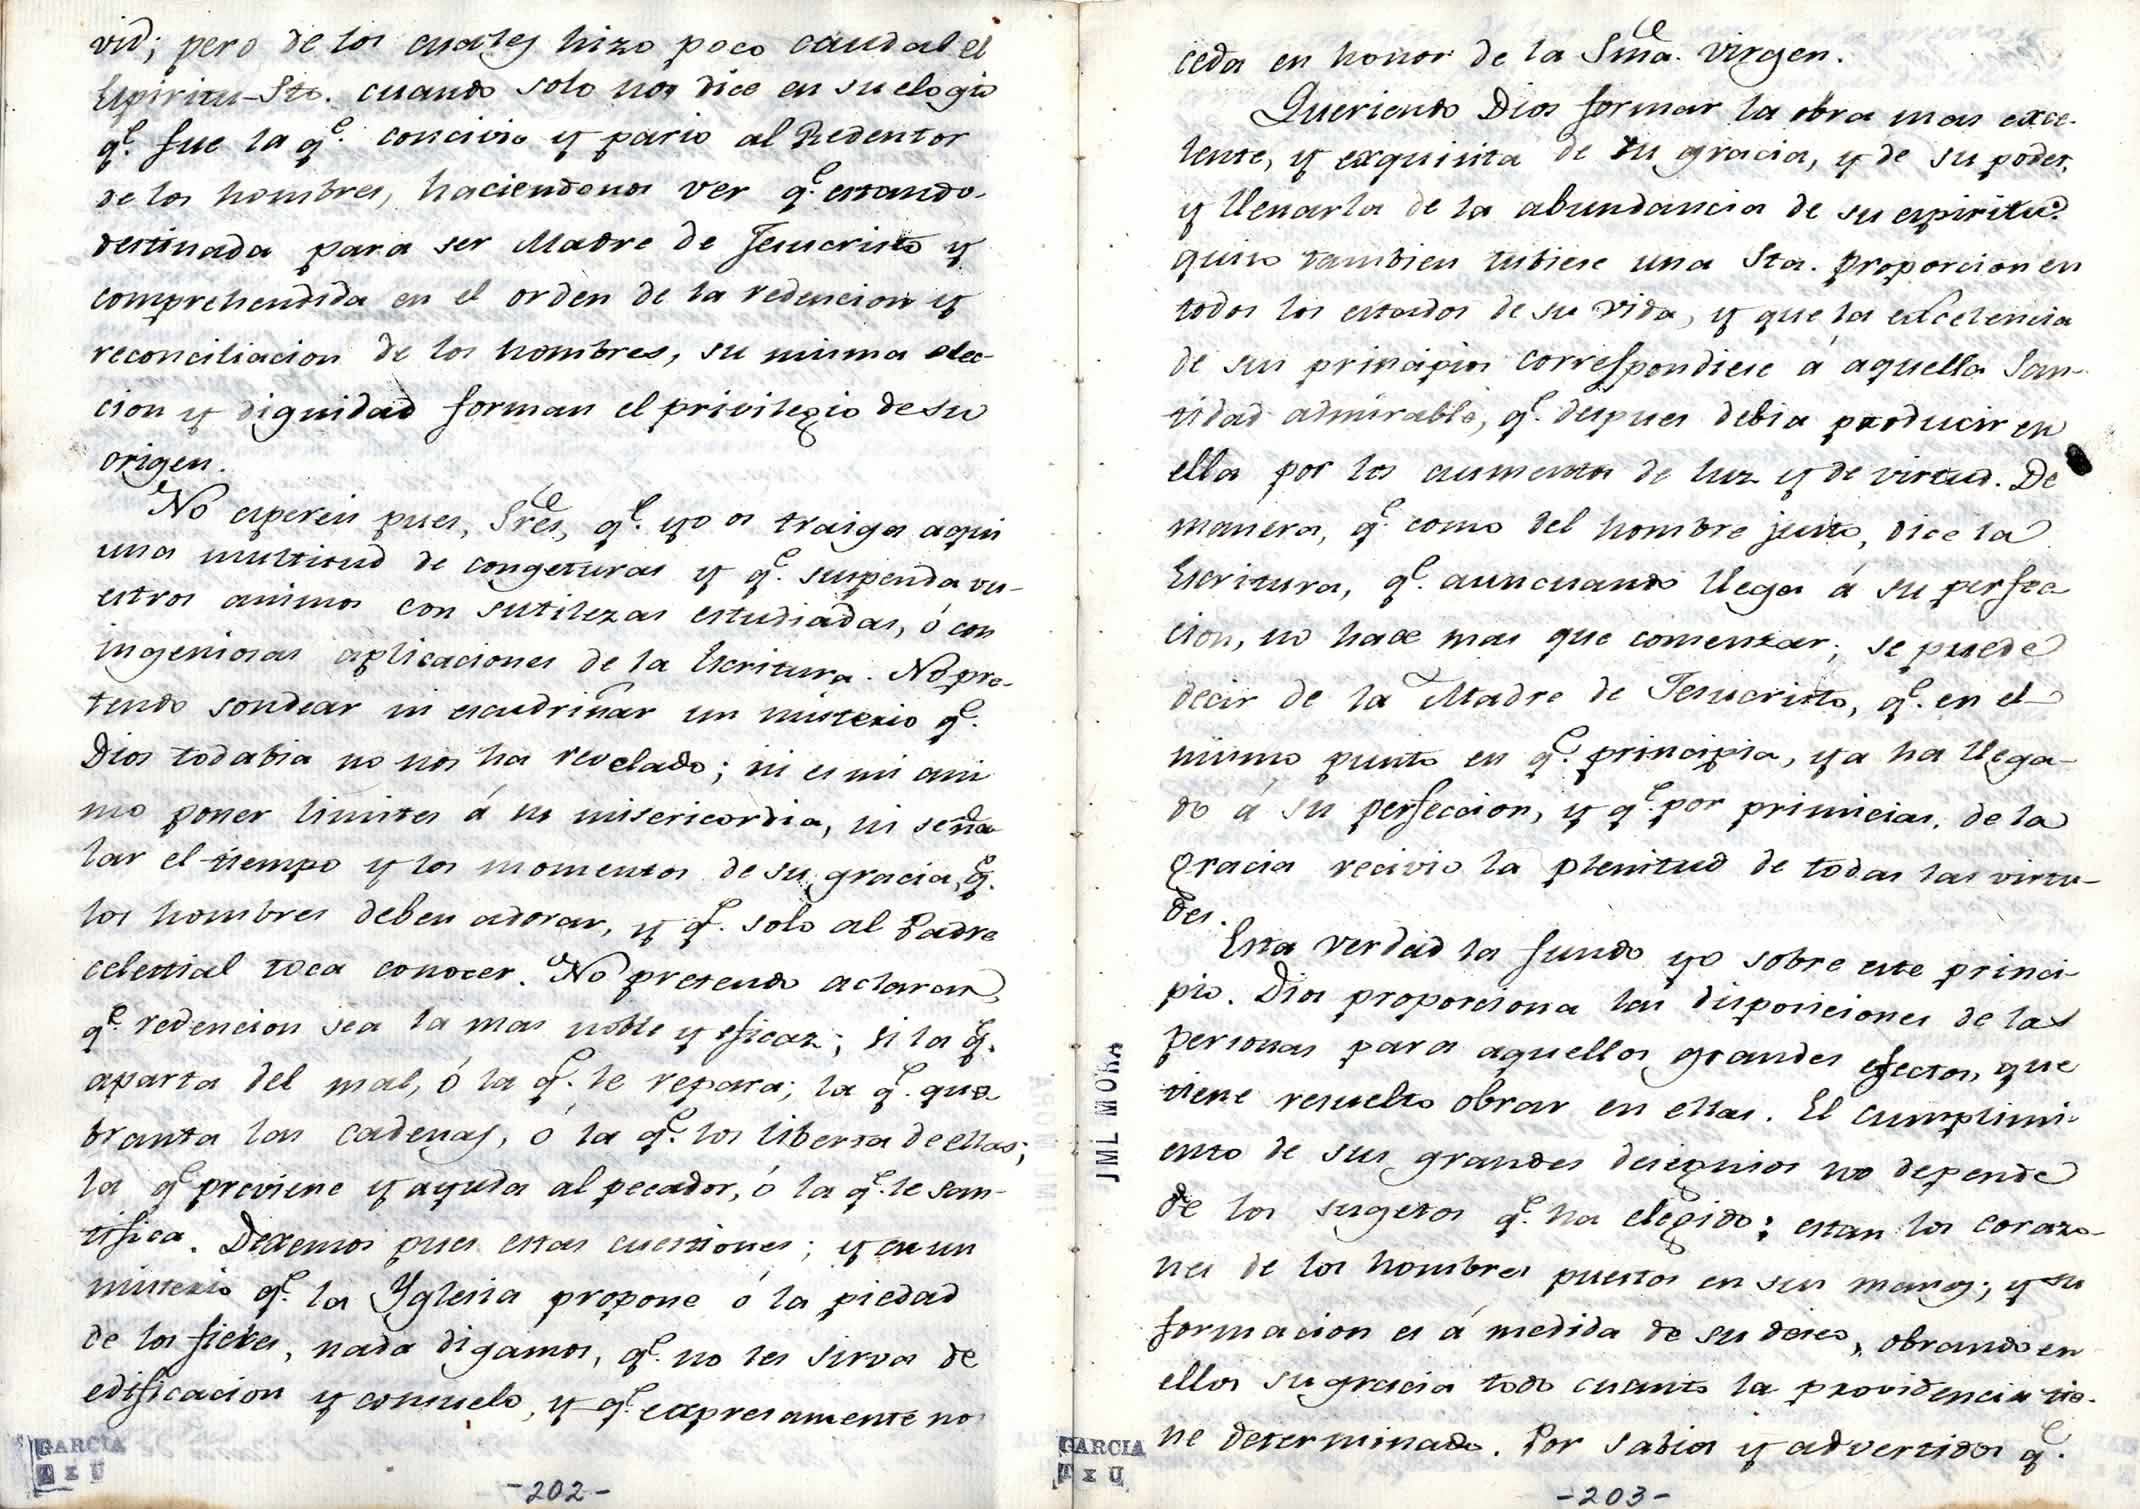 vid; pero de los cuales hizo poco caudal el
Espiritu-Sto. cuando solo nos dice en su elogio
qe. fue la qe. concivio y pario al Redentor
de los hombres, haciendonos ver qe. estando-
destinada para ser Madre de Jesucristo y
comprehendida en el orden de la redencion y
reconciliacion de los hombres, su misma elec-
cion y dignidad forman el privilegio de su
origen.
No espereis pues, Sres, qe. yo os traiga aqui
una multitud de congeturas y qe. suspenda vu-
estros animos con sutilezas estudiadas, ó con
ingeniosas aplicaciones de la Escritura. No pre-
tendo sondear ni escudriñar un misterio qe.
Dios todabia no nos ha revelado; ni es mi ani
mo poner limites á su misericordia, ni seña
lar el tiempo y los momentos de su gracia, qe.
los hombres deben adorar, y qe. solo al Padre
celestial toca conocer. No pretendo aclarar,
qe. redencion sea la mas noble y eficaz; si la qe.
aparta del mal, ó la qe. le repara; la qe. que
branta las cadenas, ó la qe. los liberta de ellas;
la qe. previene y ayuda al pecador, ó la qe. le san-
tifica. Dexemos pues estas cuestiones; y en un
misterio qe. la Yglesia propone ó la piedad
de los fieles, nada digamos, qe. no les sirva de
edificacion y consuelo, y qe. expresamente no
GARCIA
TxU
-202-
ceda en honor de la Sma. Virgen.
Queriendo Dios formar la obra mas exce-
lente, y exquisita de su gracia, y de su poder,
y llenarla de la abundancia de su espiritu.
quiso tambien tubiese una Sta. proporcion en
todos los estados de su vida, y que la excelencia
de sus principios correspondiese á aquella San-
tidad admirable, qe. despues debia producir en
ella por los aumentos de luz y de virtud. De
manera, qe. como del hombre justo, dice la
Escritura, qe. aun cuando llega á su perfec
cion, no hace mas que comenzar; se puede
decir de la Madre de Jesucristo, qe. en el
mismo punto en qe. principia, ya ha llega-
do á su perfeccion, y qe. por primicias, de la
gracia recivio la plenitud de todas las virtu-
des.
Esta verdad la fundo yo sobre este princi-
pio. Dios proporciona las disposiciones de las
personas para aquellos grandes efectos, que
tiene resuelto obrar en ellas. El cumplimi-
ento de sus grandes designios no depende
de los sugetos qe. ha elegido; estan los corazo-
nes de los hombres puestos en sus manos; y su
formacion es á medida de su deseo, obrando en
ellos su gracia todo cuanto la providencia tie-
ne determinado. Por sabia y advertidos qe.
JML MORA
GARCIA
TxU
-203-